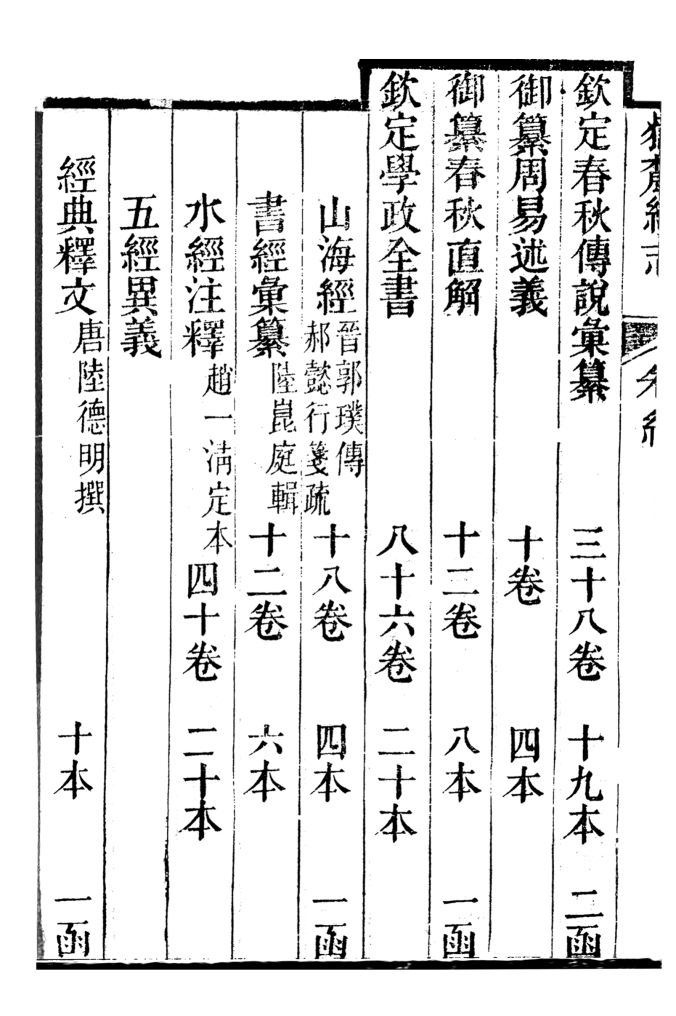 欽定春秋傳說彙纂 三十八卷 十九本 二函
御纂周易述義 十卷 四本
御纂春秋直解 十二卷 八本 一函
欽定學政全書 八十六卷 二十本
山海經 晉郭璞傳 郝懿行箋疏 十八卷 四本 一函
書經彙纂 陸崑庭輯 十二卷 六本
水經注釋 趙一淸定本 四十卷 二十本
五經異義
經典釋文 唐陸德明撰 十本 一函